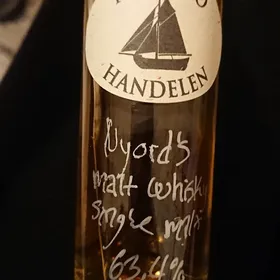 HANDELEN
Nyord's
malt whisky
single malt
63,4%